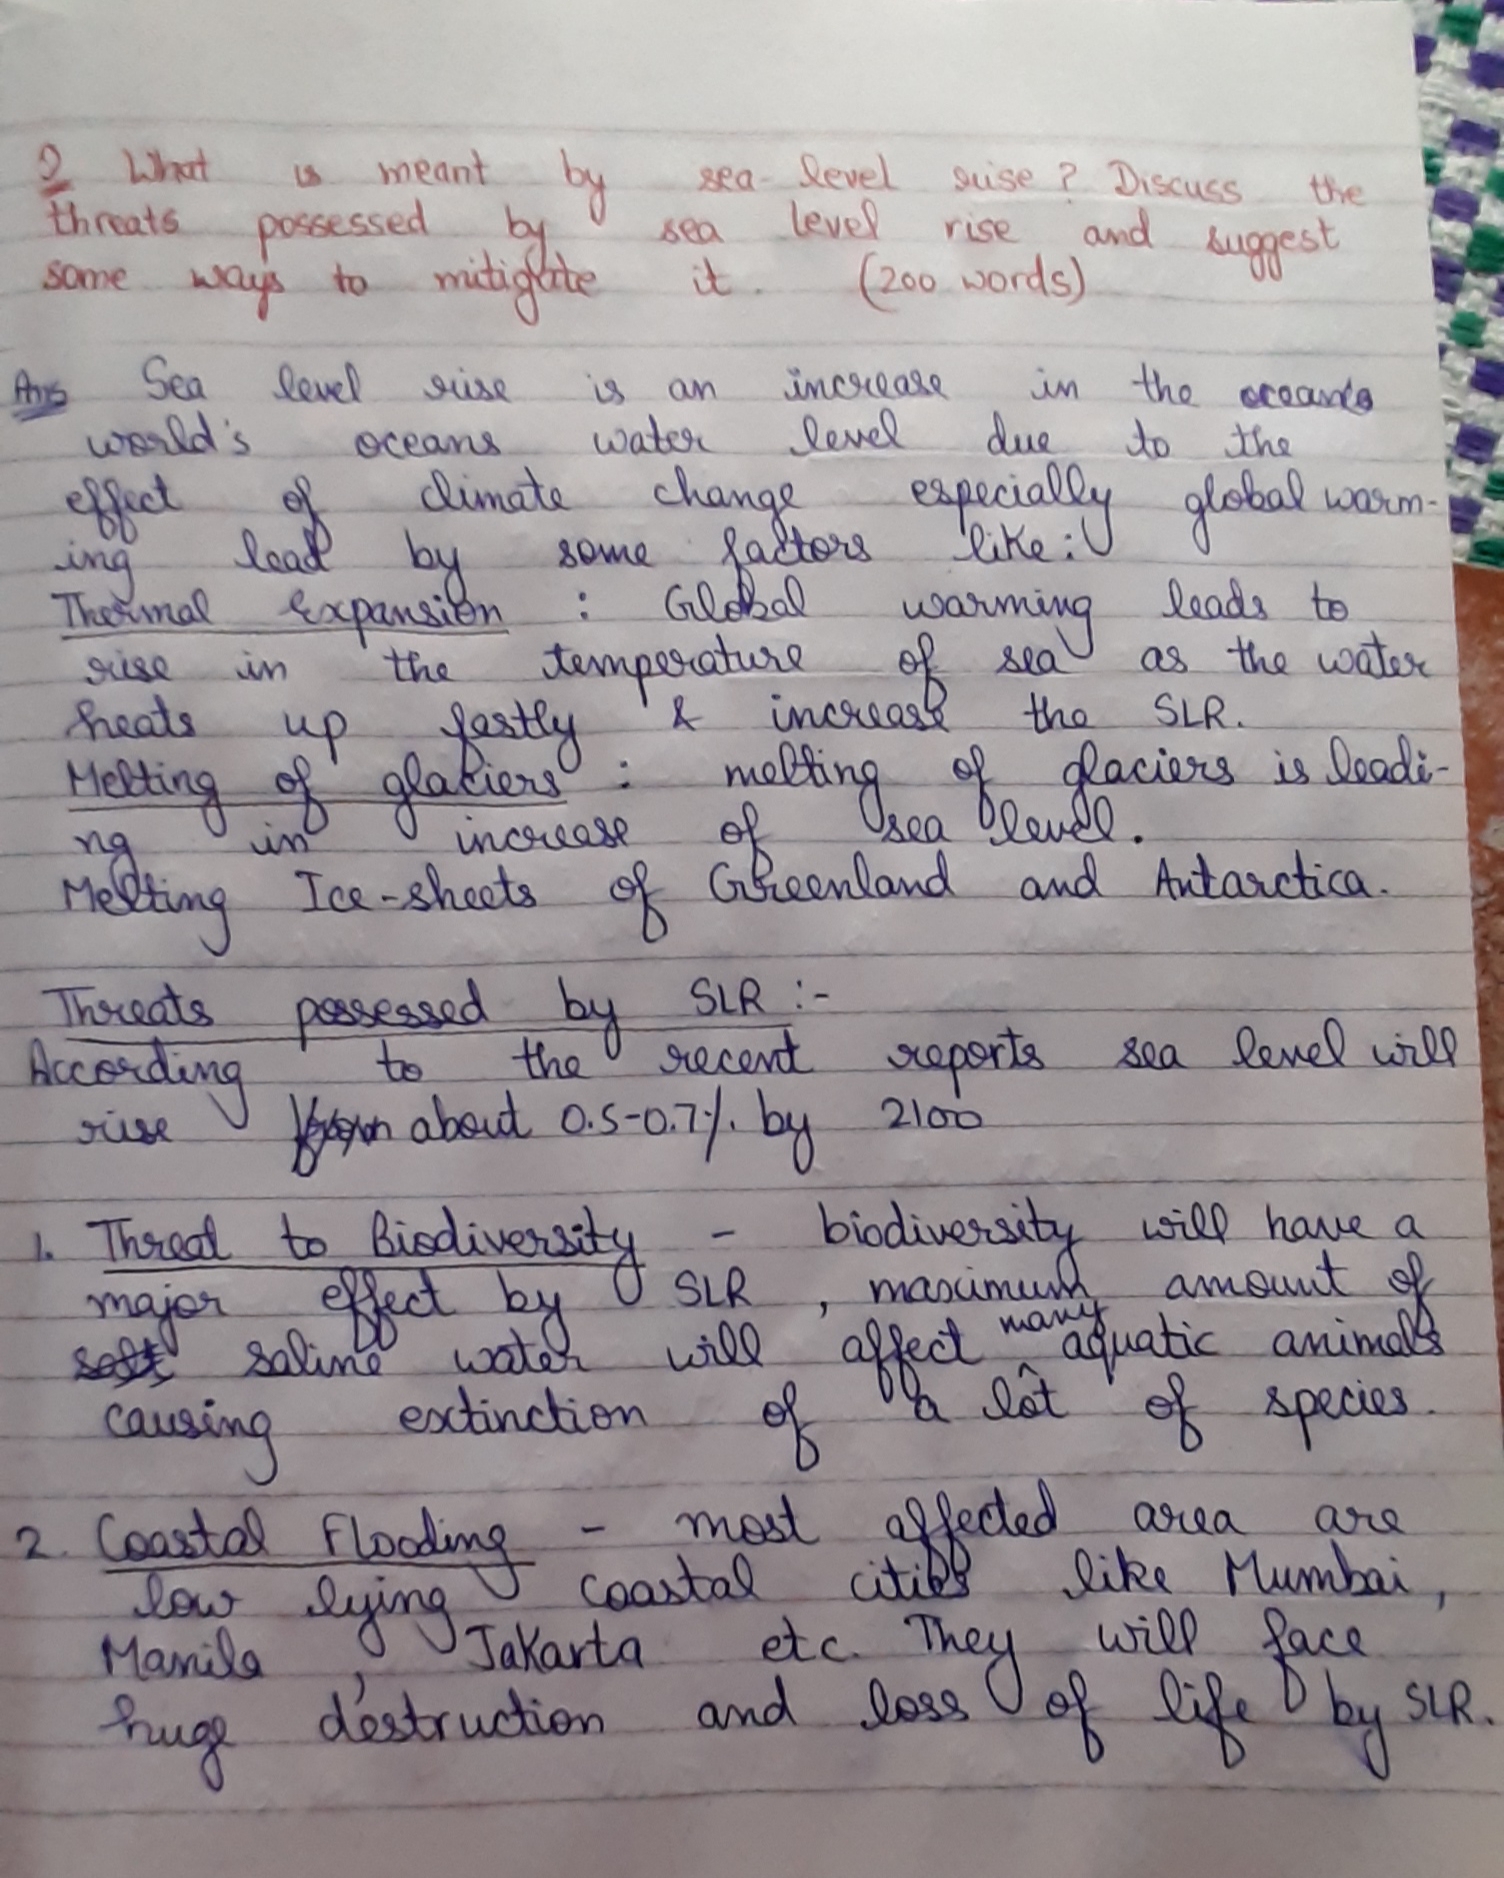 Q What is meant by sea level rise? Discuss the
threats possessed by sea level rise and suggest
some ways to mitigate it. (200 words)
Ans Sea level rise is an increase in the oceans
world's oceans water level due to the
effect of climate change especially global warm-
ing lead by some factors like:
Thermal Expansion : Global warming leads to
rise in the temperature of sea as the water
heats up fastly & increase the SLR.
Melting of glaciers : melting of glaciers is leadi-
ng in increase of sea level.
Melting Ice-sheets of Greenland and Antarctica.
Threats possessed by SLR :-
According to the recent reports sea level will
rise about 0.5-0.7%. by 2100
1. Threat to Biodiversity - biodiversity will have a
major effect by SLR , maximum amount of
salt saline water will affect many aquatic animals
causing extinction of a lot of species.
2. Coastal Flooding - most affected area are
low lying coastal cities like Mumbai,
Manila , Jakarta etc. They will face
huge destruction and loss of life by SLR.